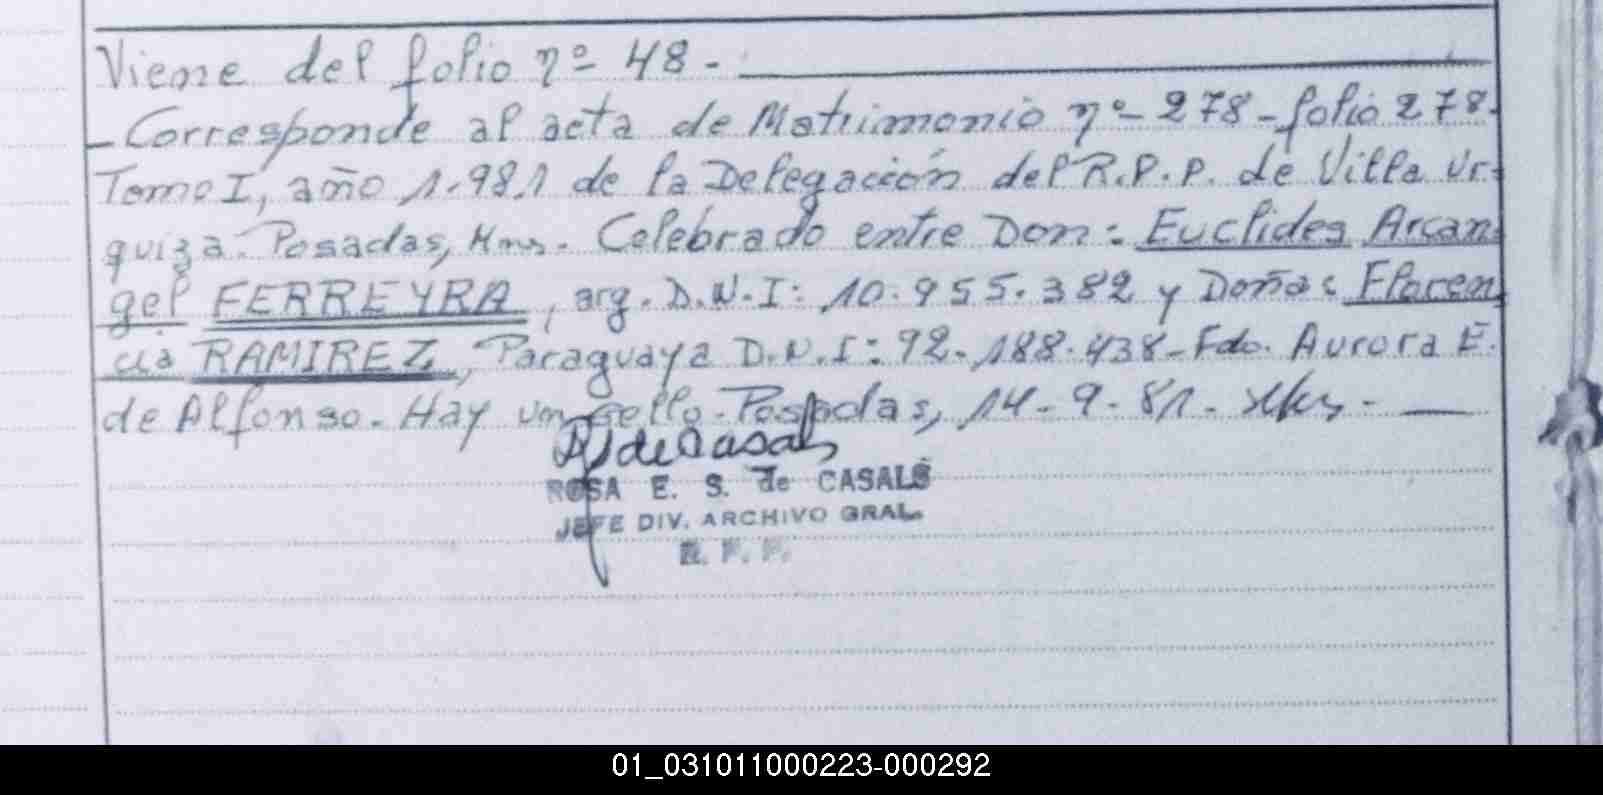 Viene del folio nº 48.-
- Corresponde al acta de Matrimonio nº 278 - folio 278-
Tomo I, año 1.981 de la Delegación del R.P.P. de Villa Ur-
quiza. Posadas, Mns. Celebrado entre Don: Euclides Arcan
gel FERREYRA, arg. D.N.I: 10.955.382 y Doña: Floren
cia RAMIREZ, Paraguaya D.N.I: 92.188.438- Fdo. Aurora E.
de Alfonso. Hay un sello. Posadas, 14-9-81.
ROSA E. S. de CASALS
JEFE DIV. ARCHIVO GRAL.
R. P. P.
01_031011000223-000292